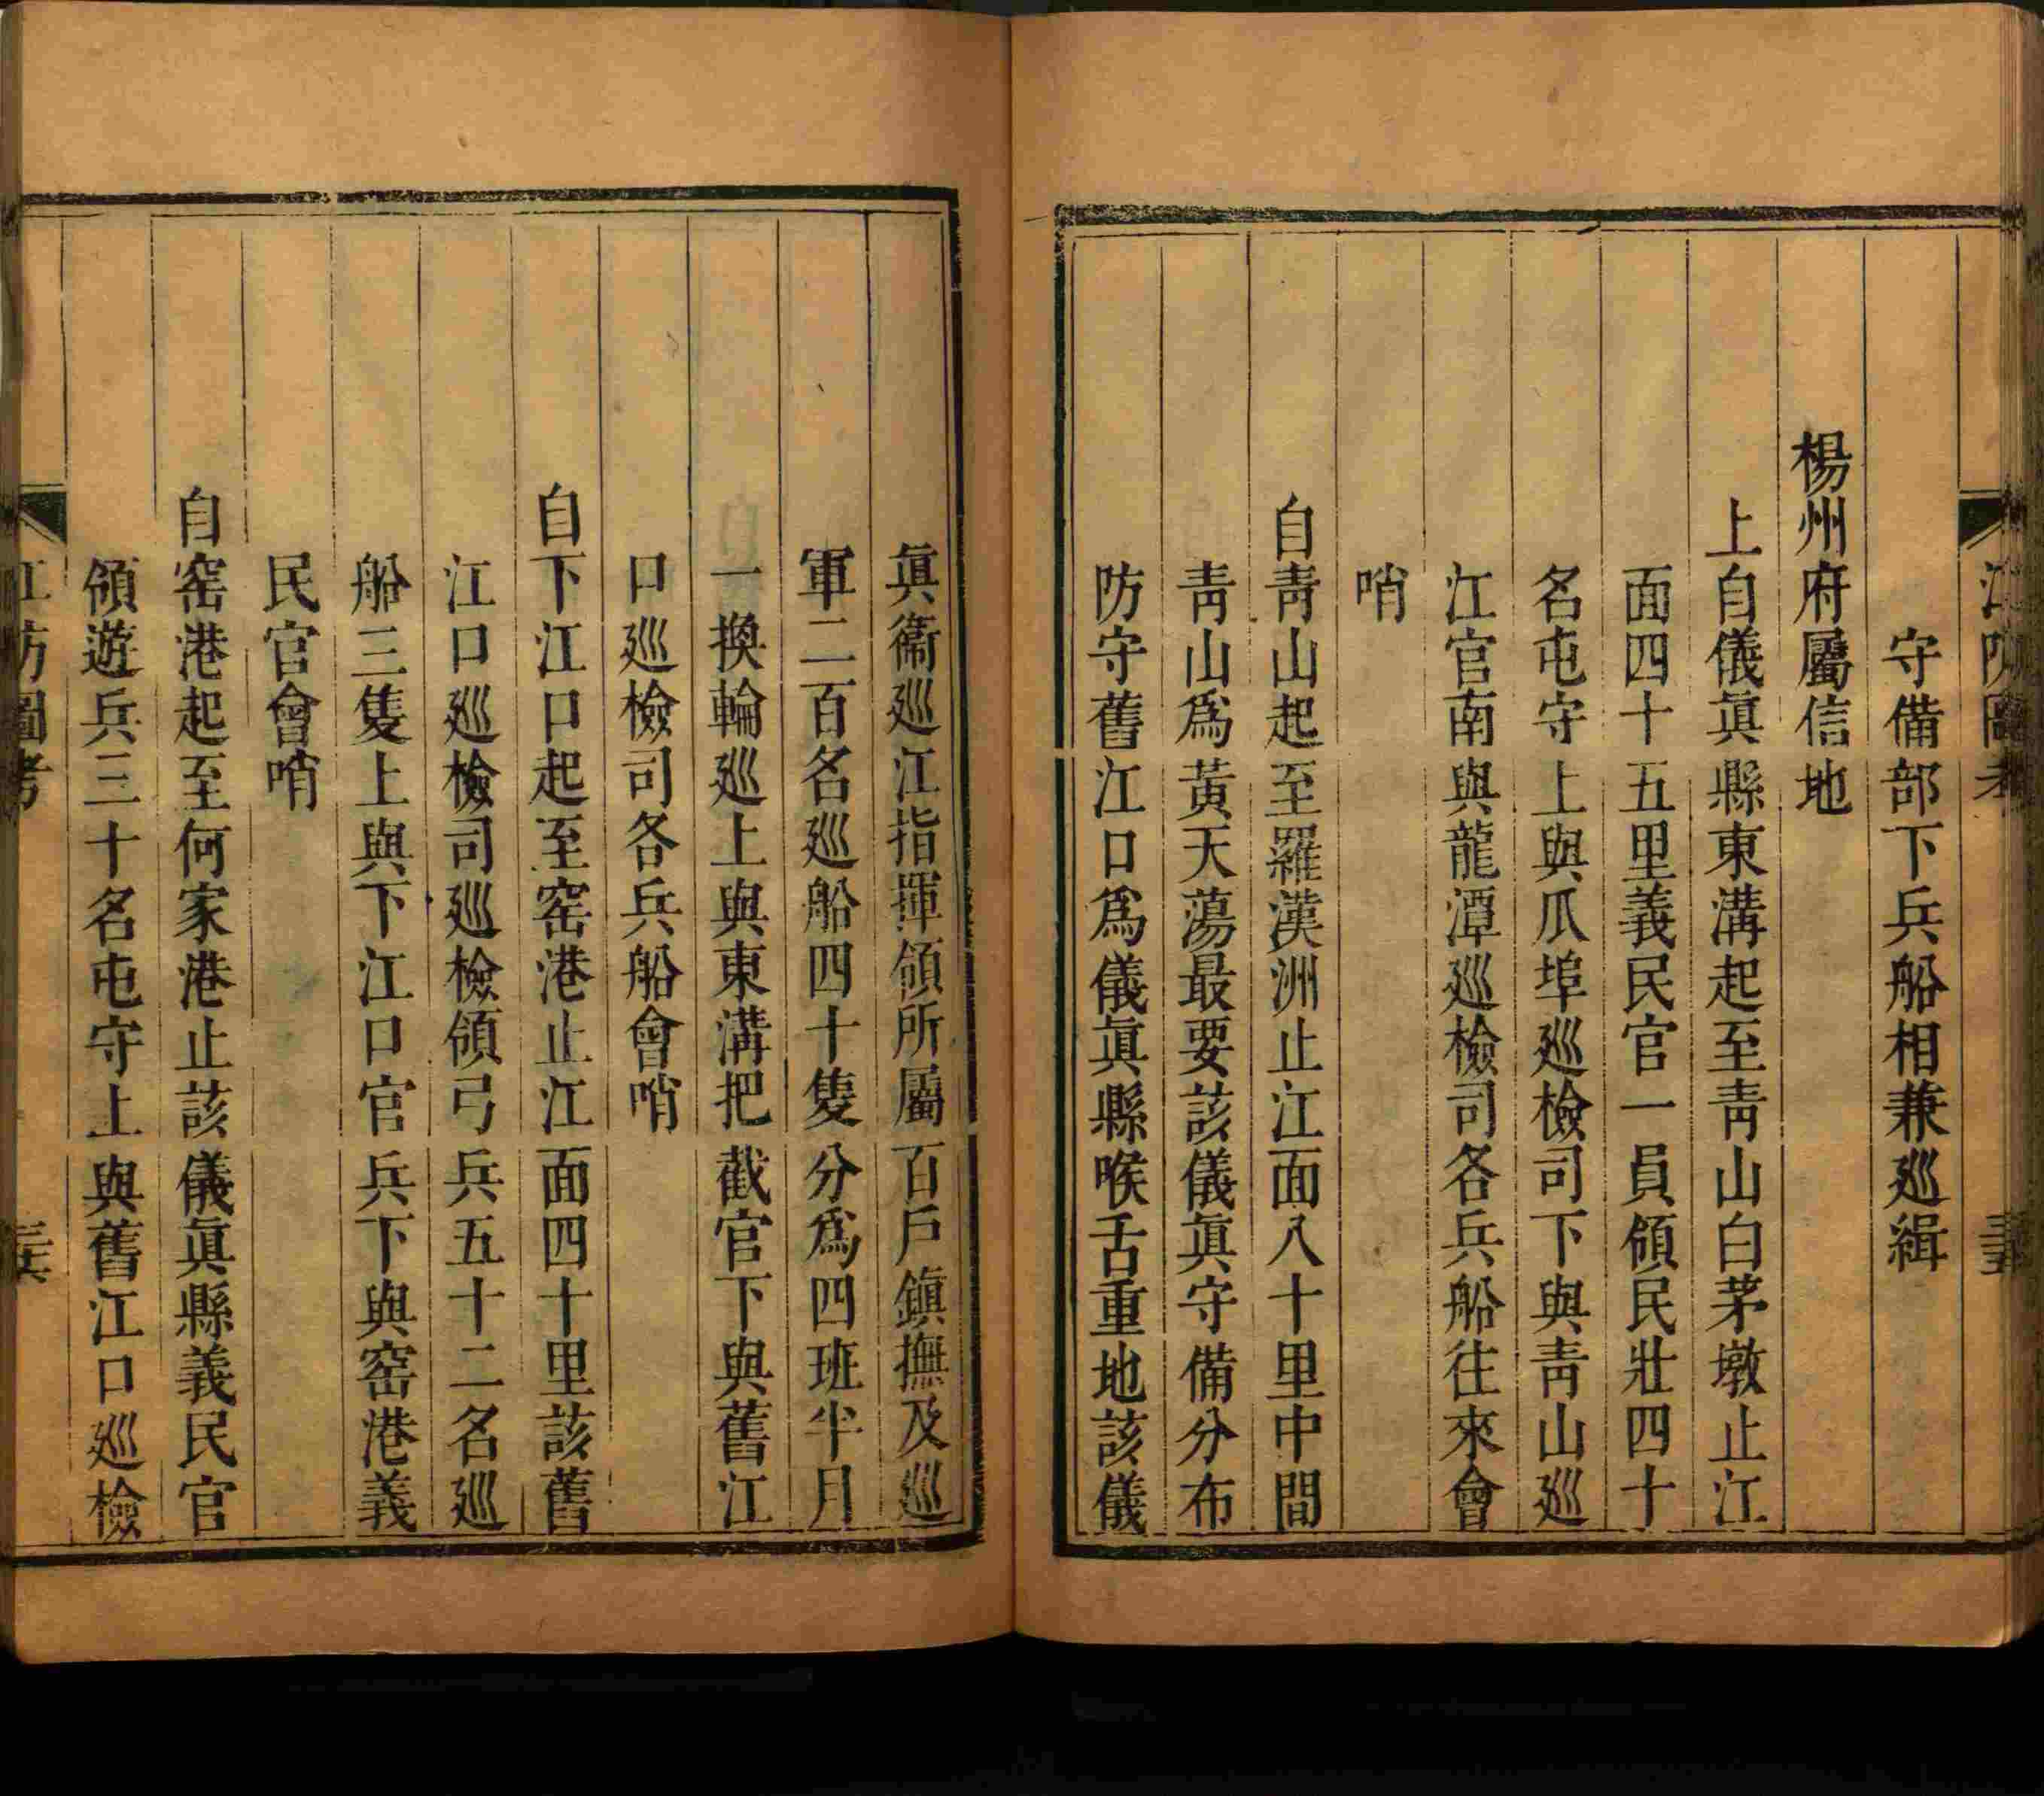 江防圖考
三五
守備部下兵船相兼廵緝
楊州府屬信地
上自儀眞縣東溝起至靑山白茅墩止江
面四十五里義民官一員領民壯四十
名屯守上與瓜埠廵檢司下與靑山廵
江官南與龍潭廵檢司各兵船往來會
哨
自靑山起至羅漢洲止江面八十里中間
靑山爲黃天蕩最要該儀眞守備分布
防守舊江口爲儀眞縣喉舌重地該儀
眞衞廵江指揮領所屬百戶鎭撫及廵
軍二百名廵船四十隻分爲四班半月
一換輪廵上與東溝把截官下與舊江
口廵檢司各兵船會哨
自下江口起至窑港止江面四十里該舊
江口廵檢司廵檢領弓兵五十二名廵
船三隻上與下江口官兵下與窑港義
民官會哨
自窑港起至何家港止該儀眞縣義民官
領遊兵三十名屯守上與舊江口廵檢
江防圖考
三六